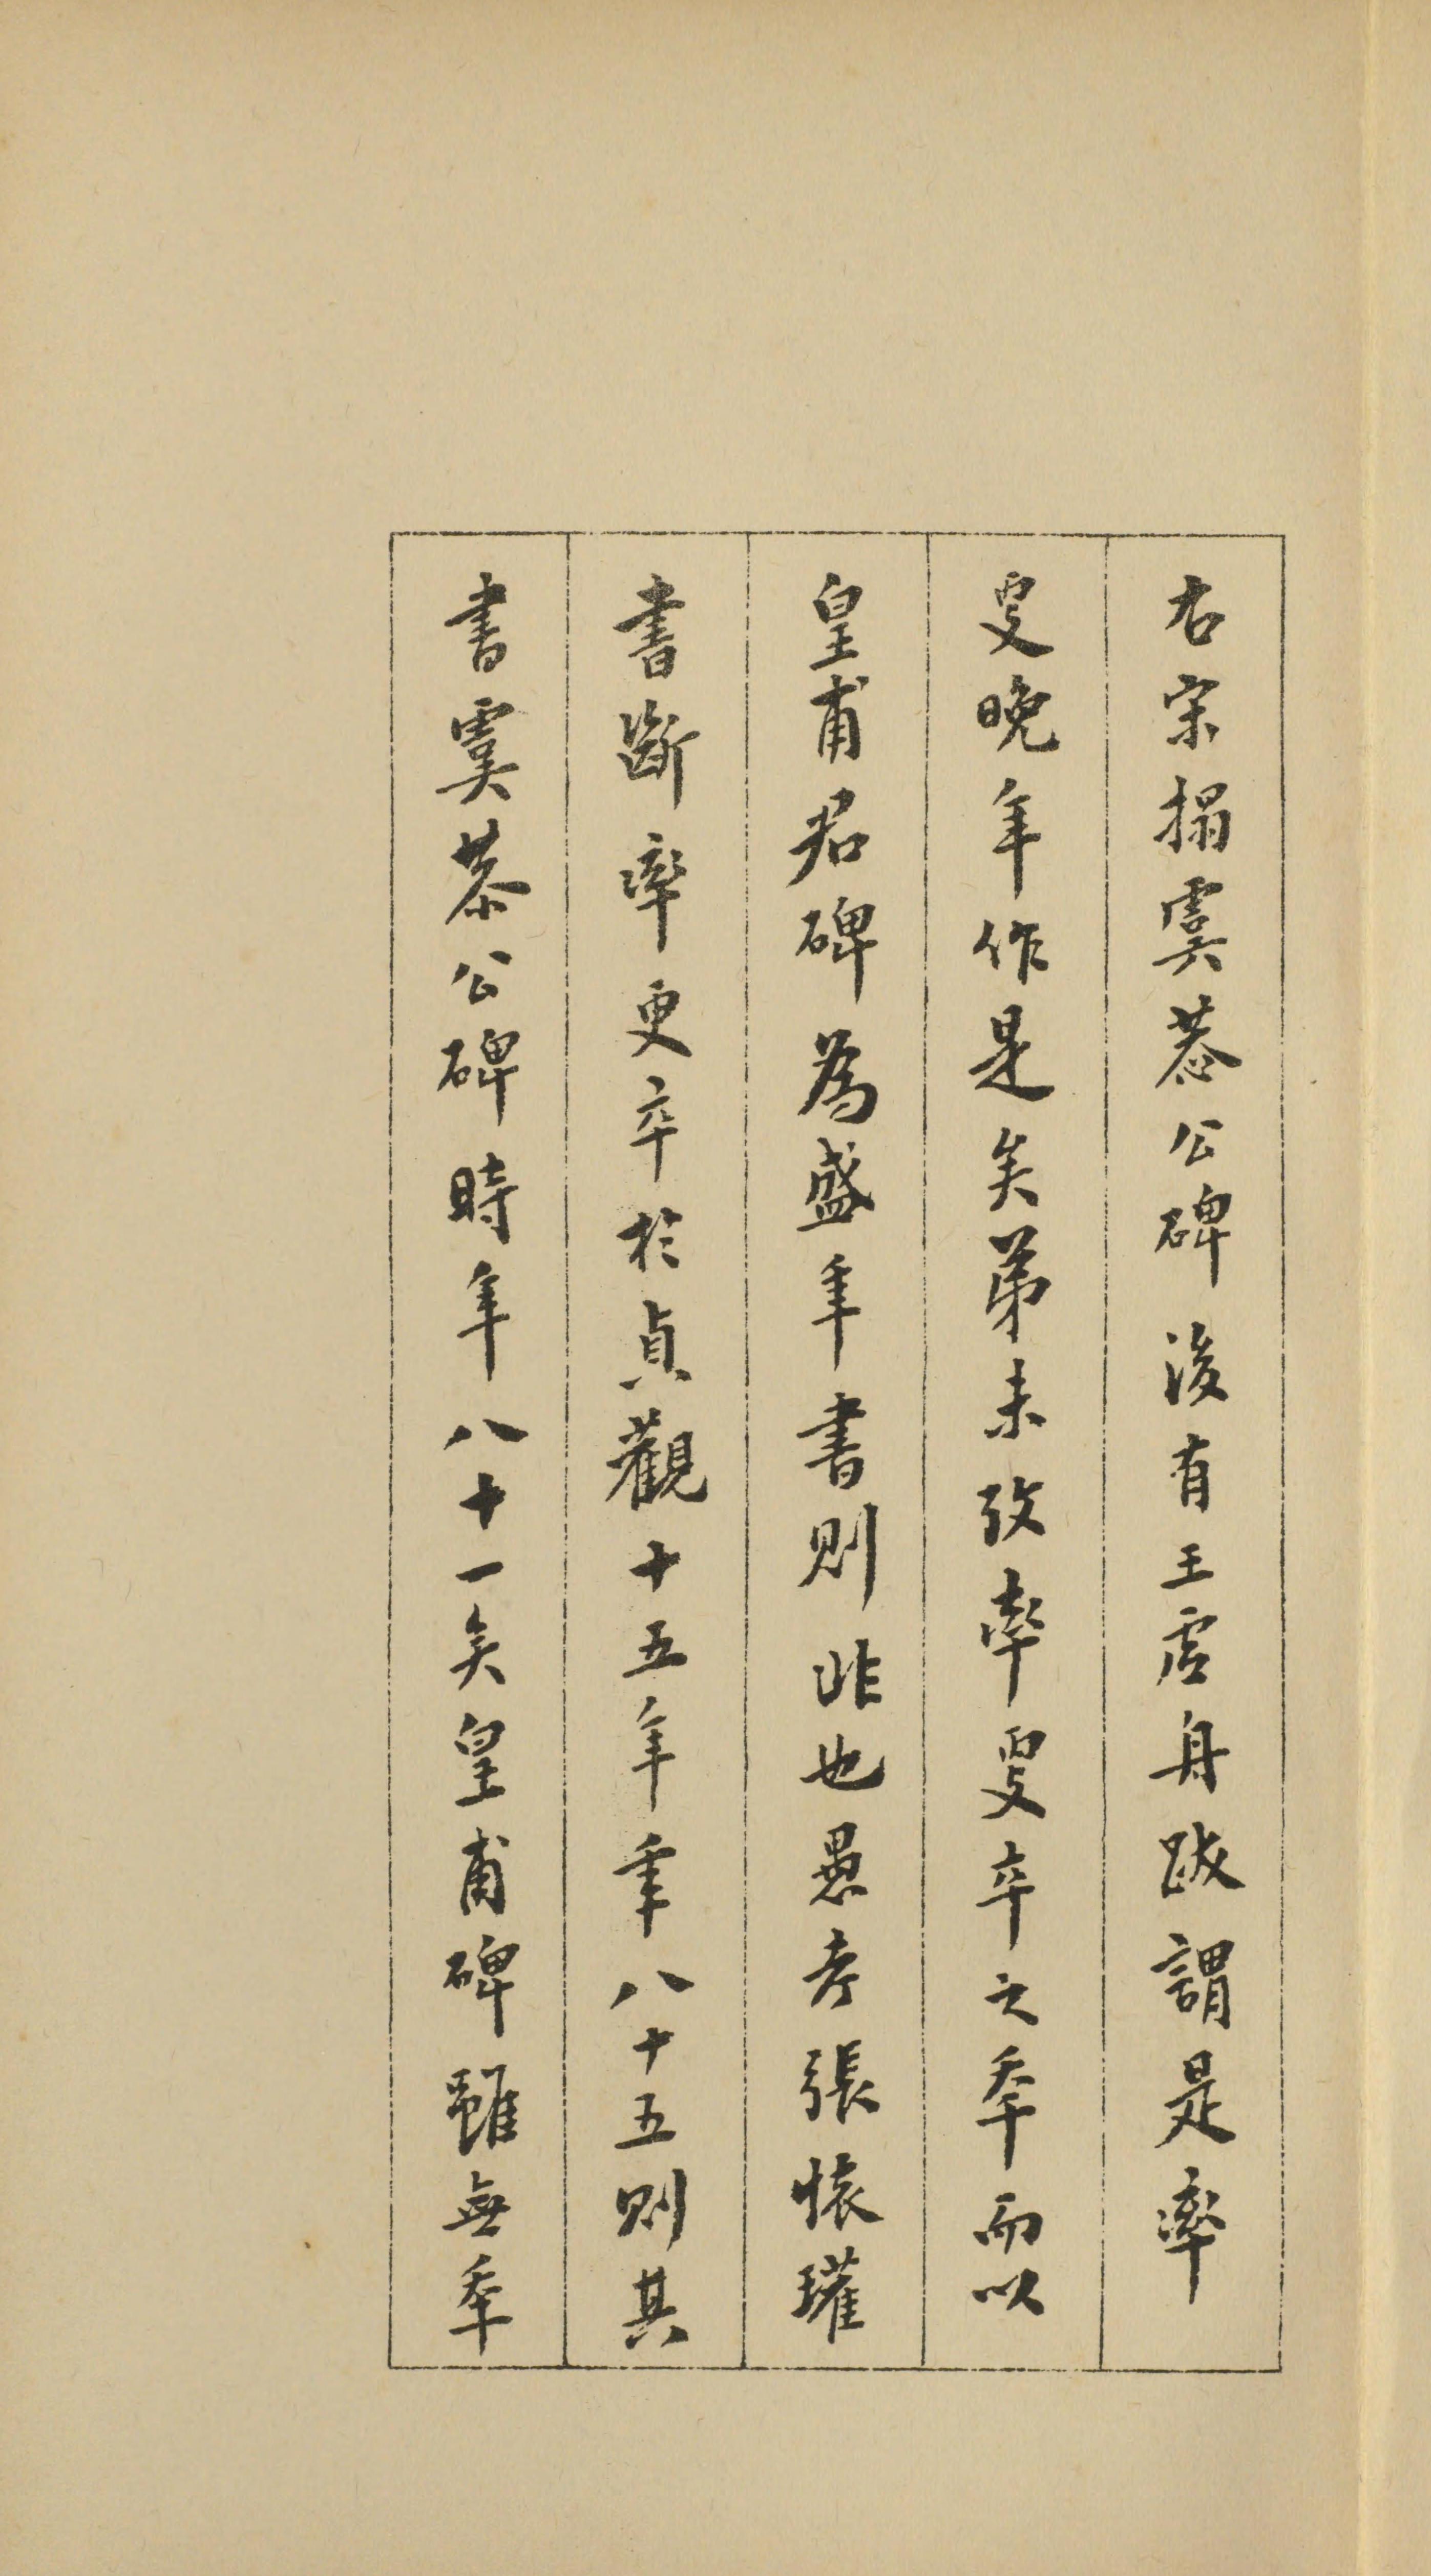 右宋搨虞恭公碑後有王虛舟跋謂是率
叟晚年作是矣弟未攷率叟卒之年而以
皇甫君碑為盛年書則非也愚考張懷瓘
書斷率更卒於貞觀十五年年八十五則其
書虞恭公碑時年八十一矣皇甫碑雖無年